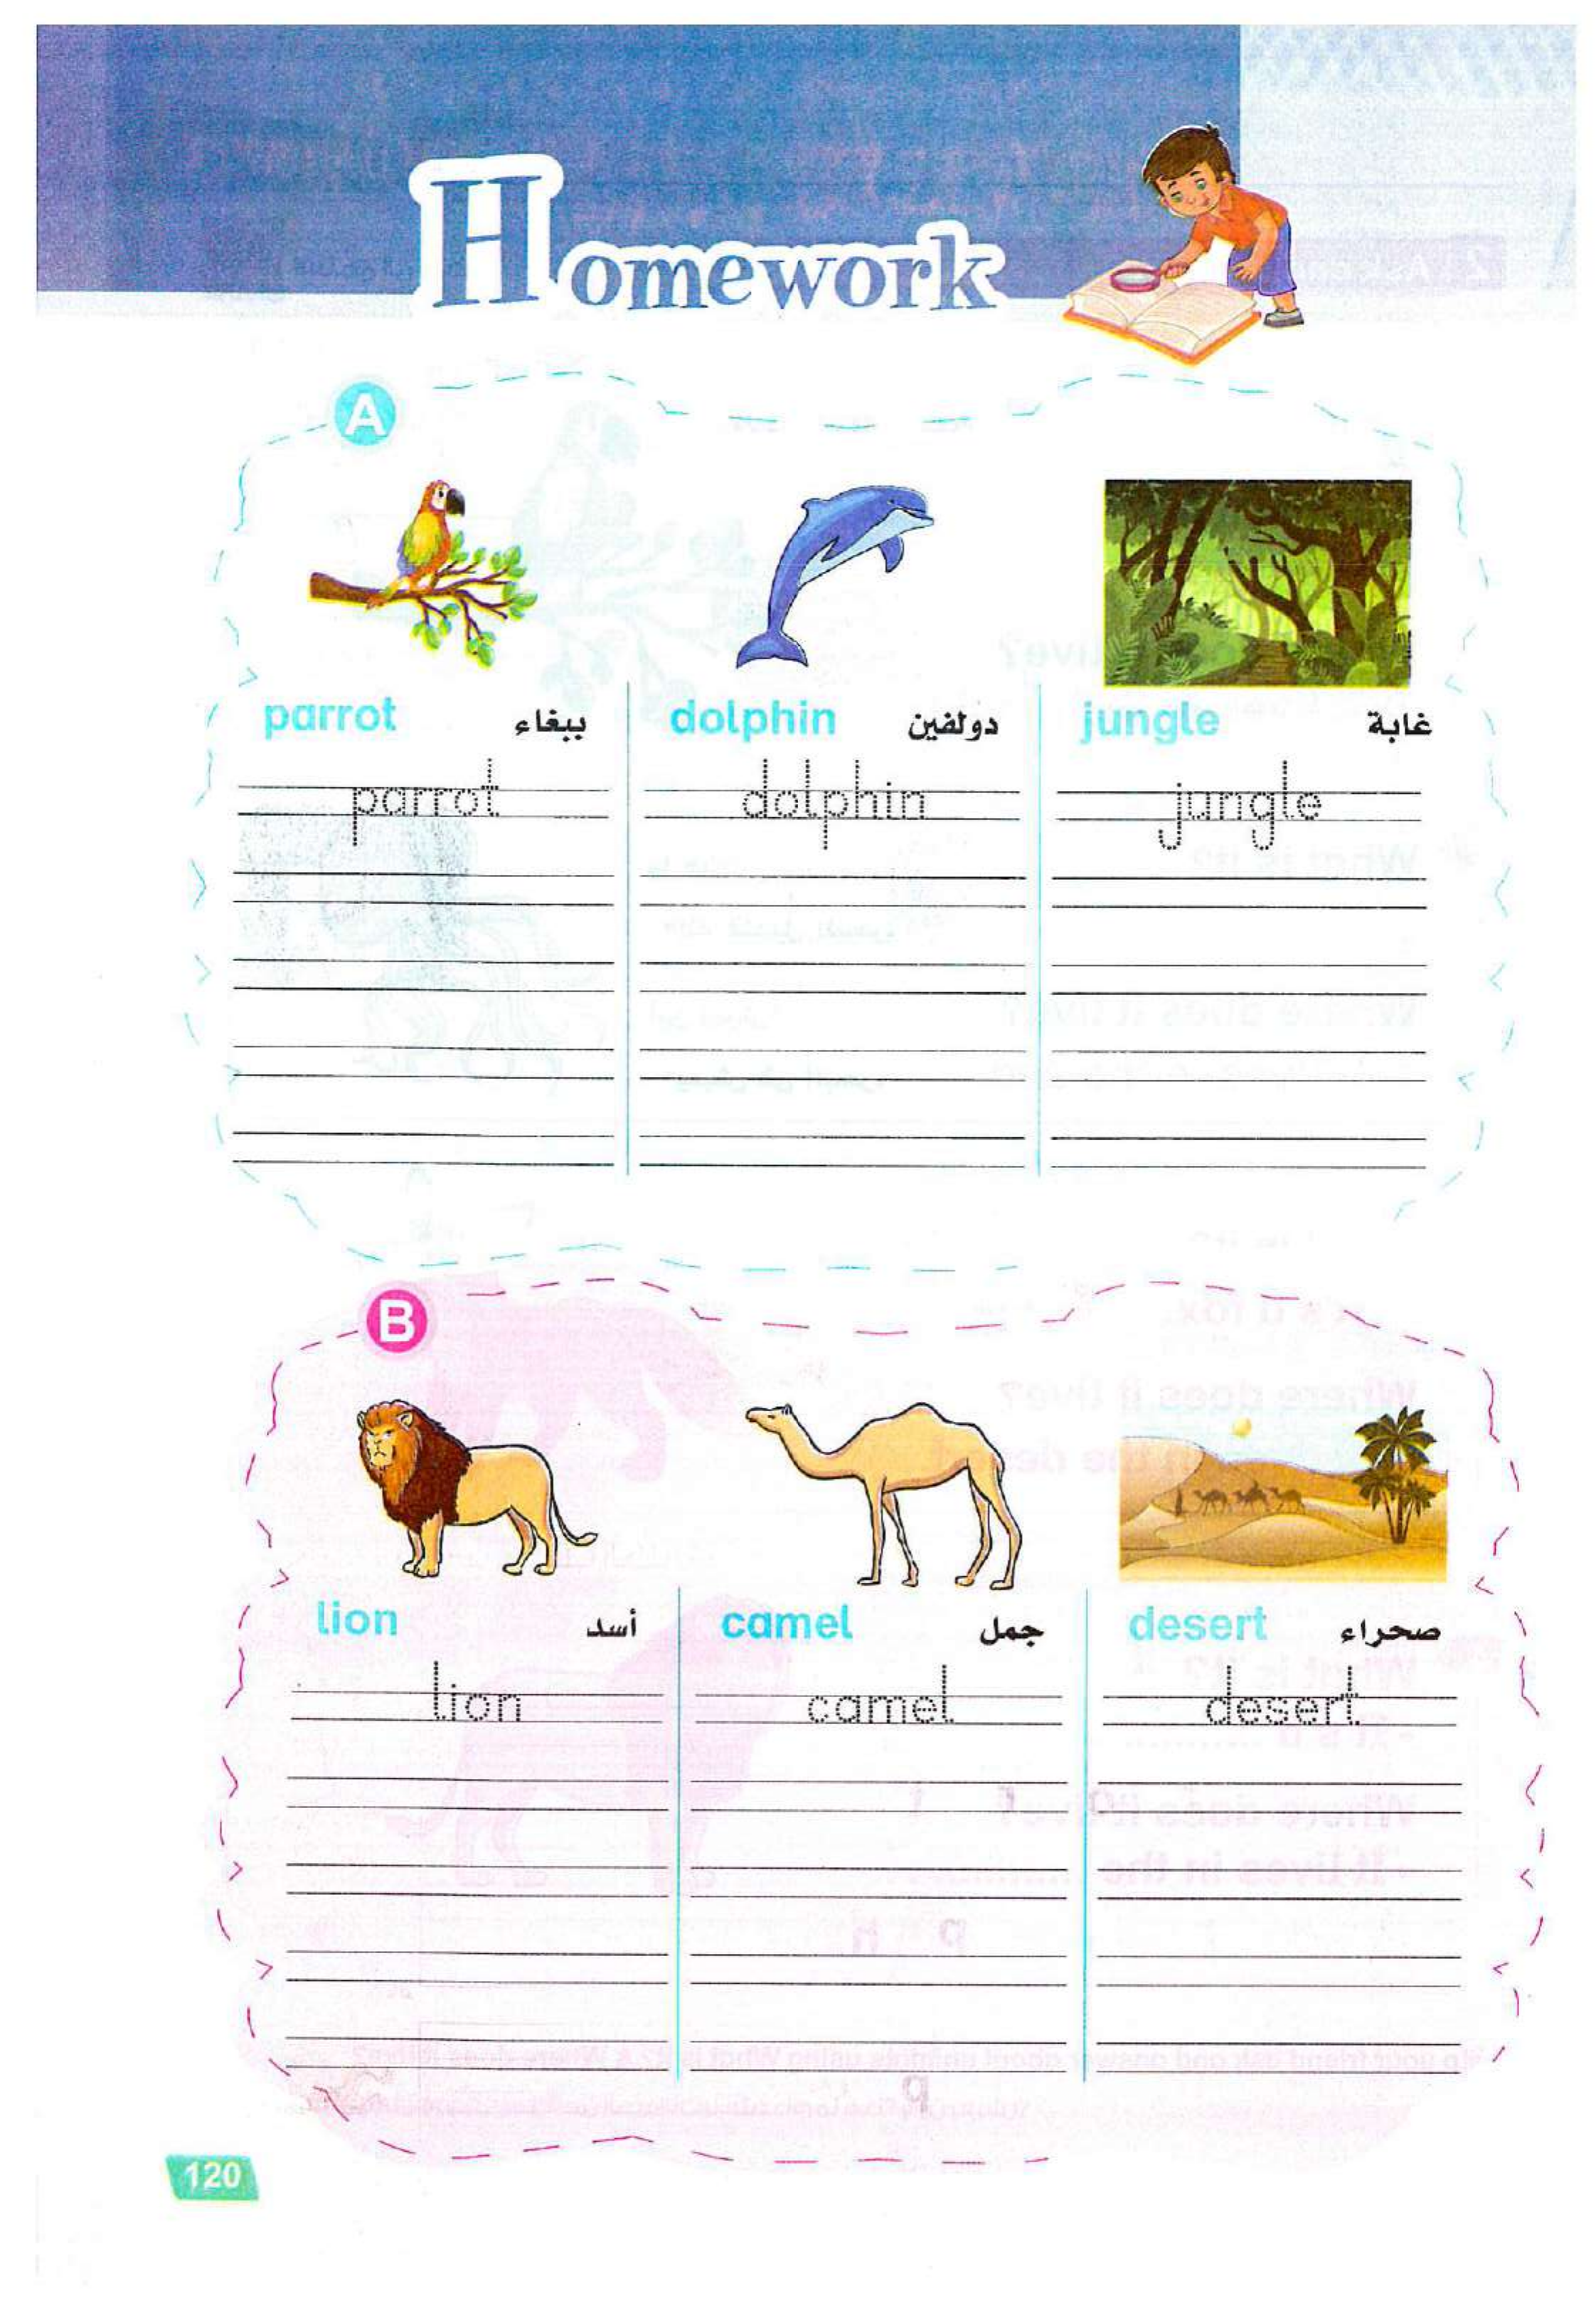 Homework
A
parrot ببغاء dolphin دولفين jungle غابة
parrot dolphin jungle
B
lion أسد camel جمل desert صحراء
lion camel desert
120